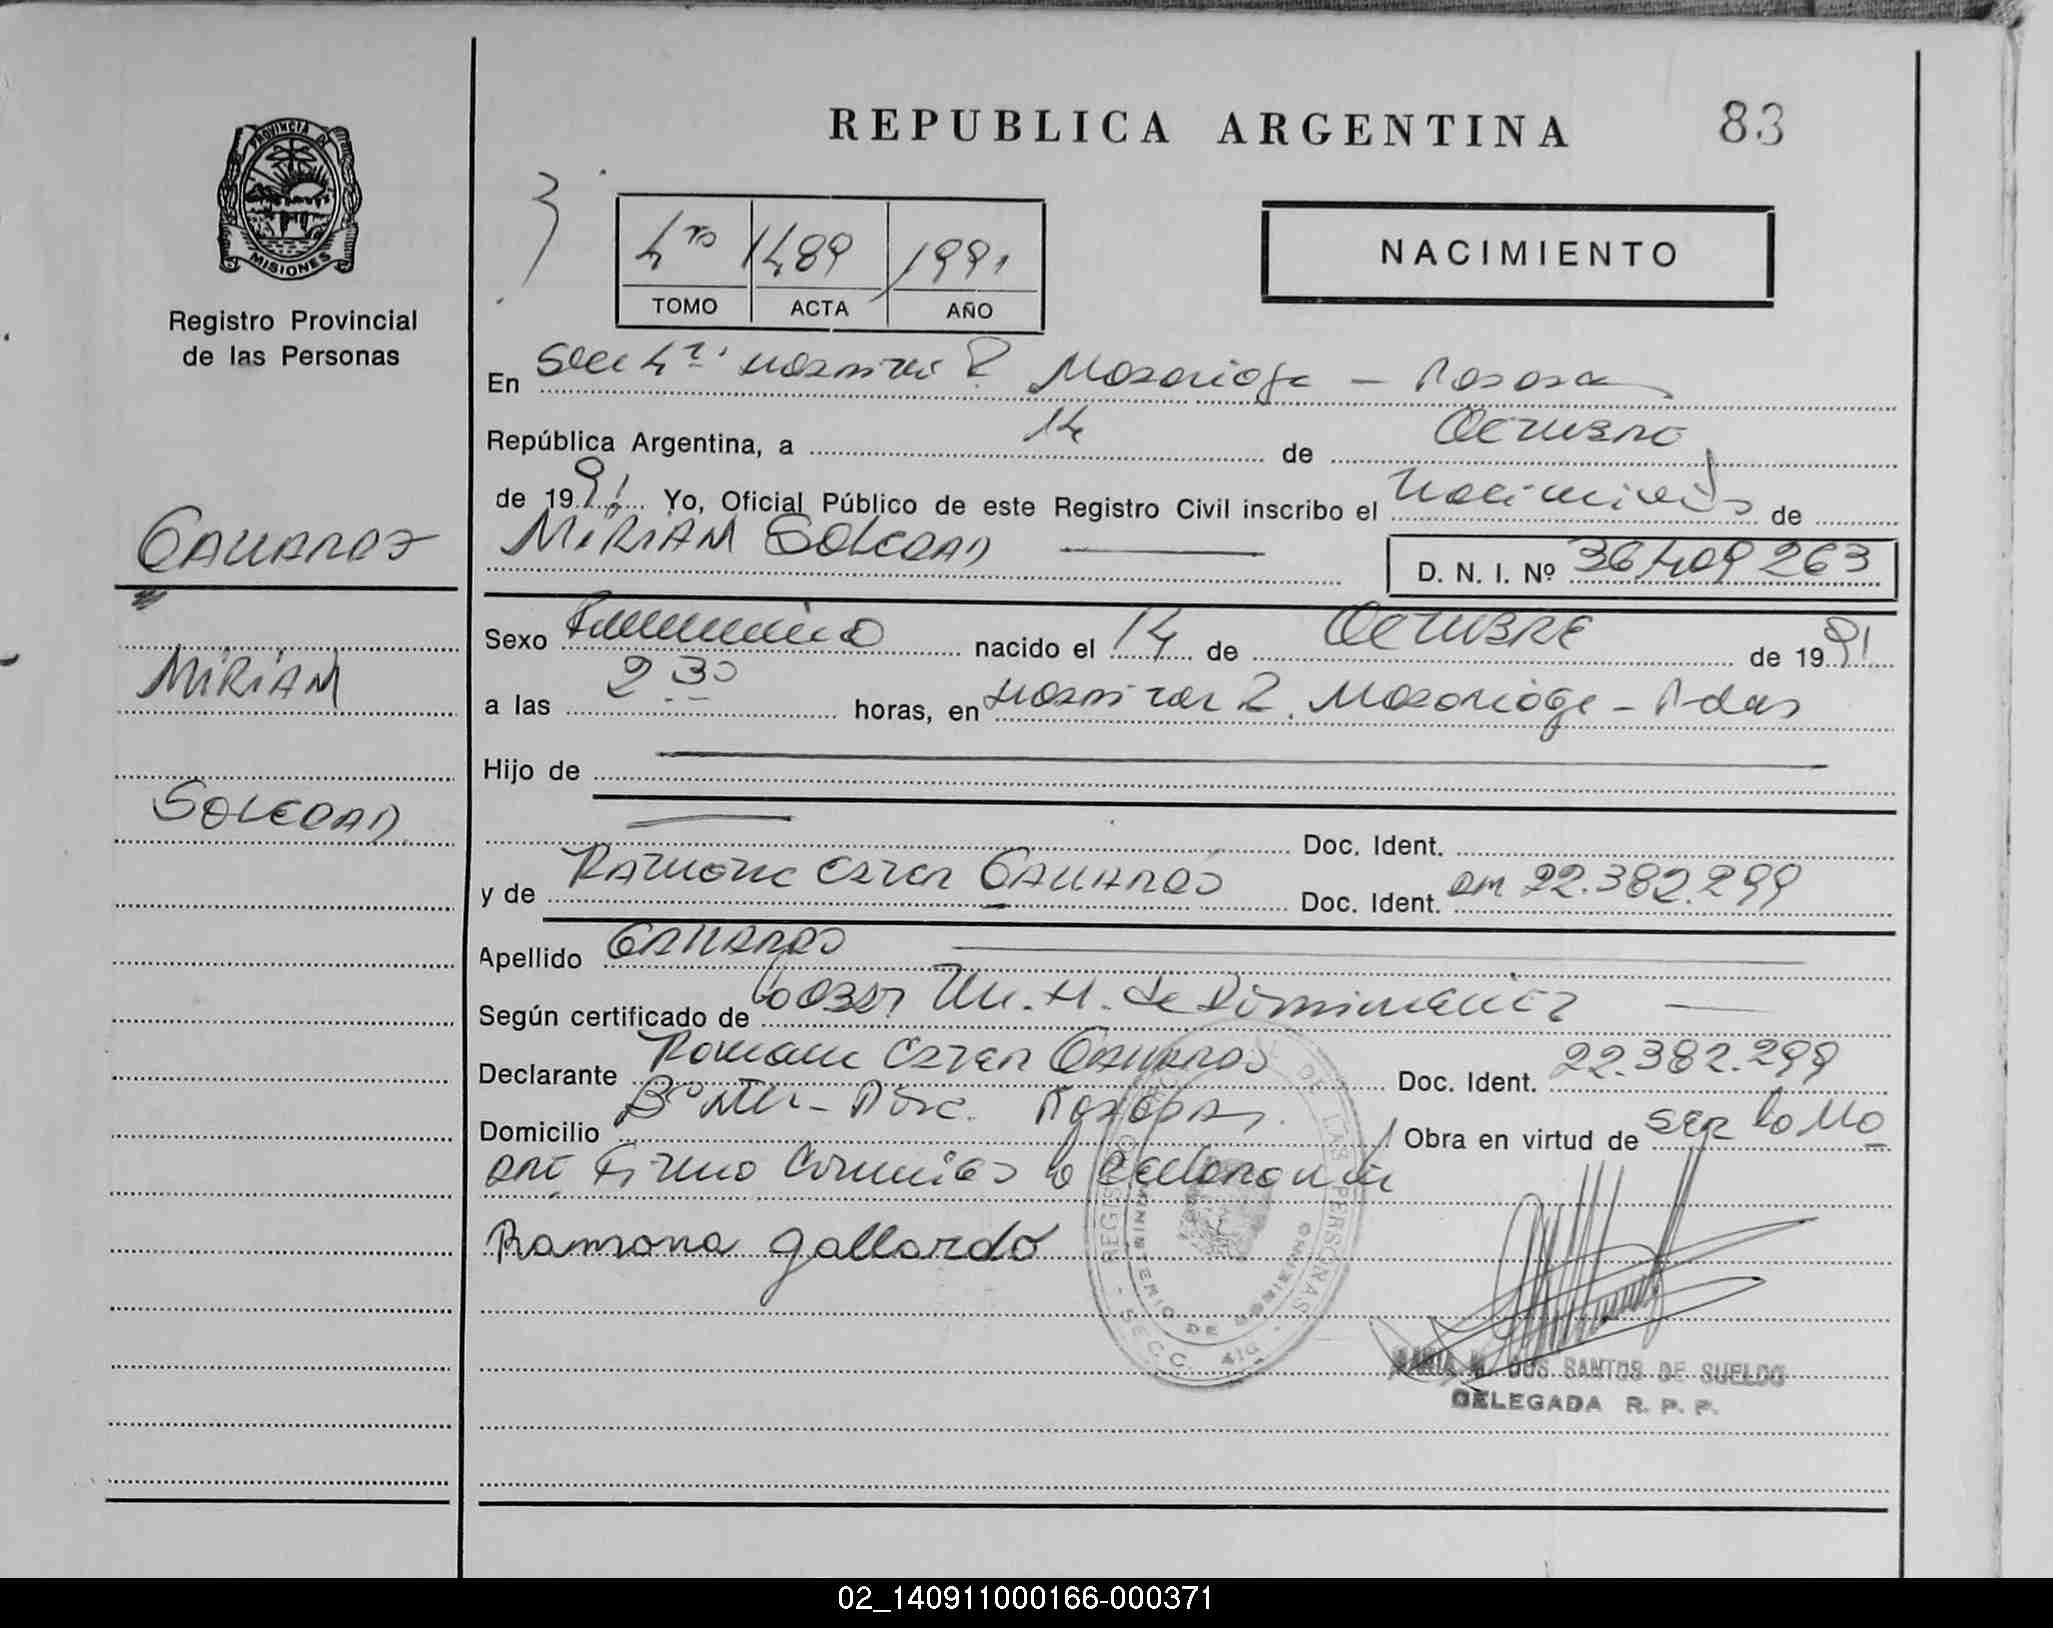 REPUBLICA ARGENTINA 83
PROVINCIA DE
MISIONES
Registro Provincial
de las Personas
4to 1489 1991
TOMO ACTA AÑO
NACIMIENTO
En Secc 4ta Hospital R. Madariaga - Posadas
República Argentina, a 14 de Octubre
de 1991 Yo, Oficial Público de este Registro Civil inscribo el Nacimiento de
MIRIAM SOLEDAD D. N. I. Nº 36409263
GALLARDO
MIRIAM
SOLEDAD
Sexo Femenino nacido el 14 de OCTUBRE de 1991
a las 2 30 horas, en Hospital R. Madariaga - Pdas
Hijo de
Doc. Ident.
y de Ramona Ester GALLARDO Doc. Ident. DNI 22.382.299
Apellido GALLARDO
Según certificado de M. H. de
Declarante Ramona Ester GALLARDO Doc. Ident. 22.382.299
Domicilio Posadas Obra en virtud de SER la Ma
dre Firmo conmigo la declarante
Ramona Gallardo
REGISTRO DE LAS PERSONAS
MINISTERIO DE GOBIERNO
SECC. 4ta
MARIA M. DOS SANTOS DE SUELDO
DELEGADA R. P. P.
02_140911000166-000371